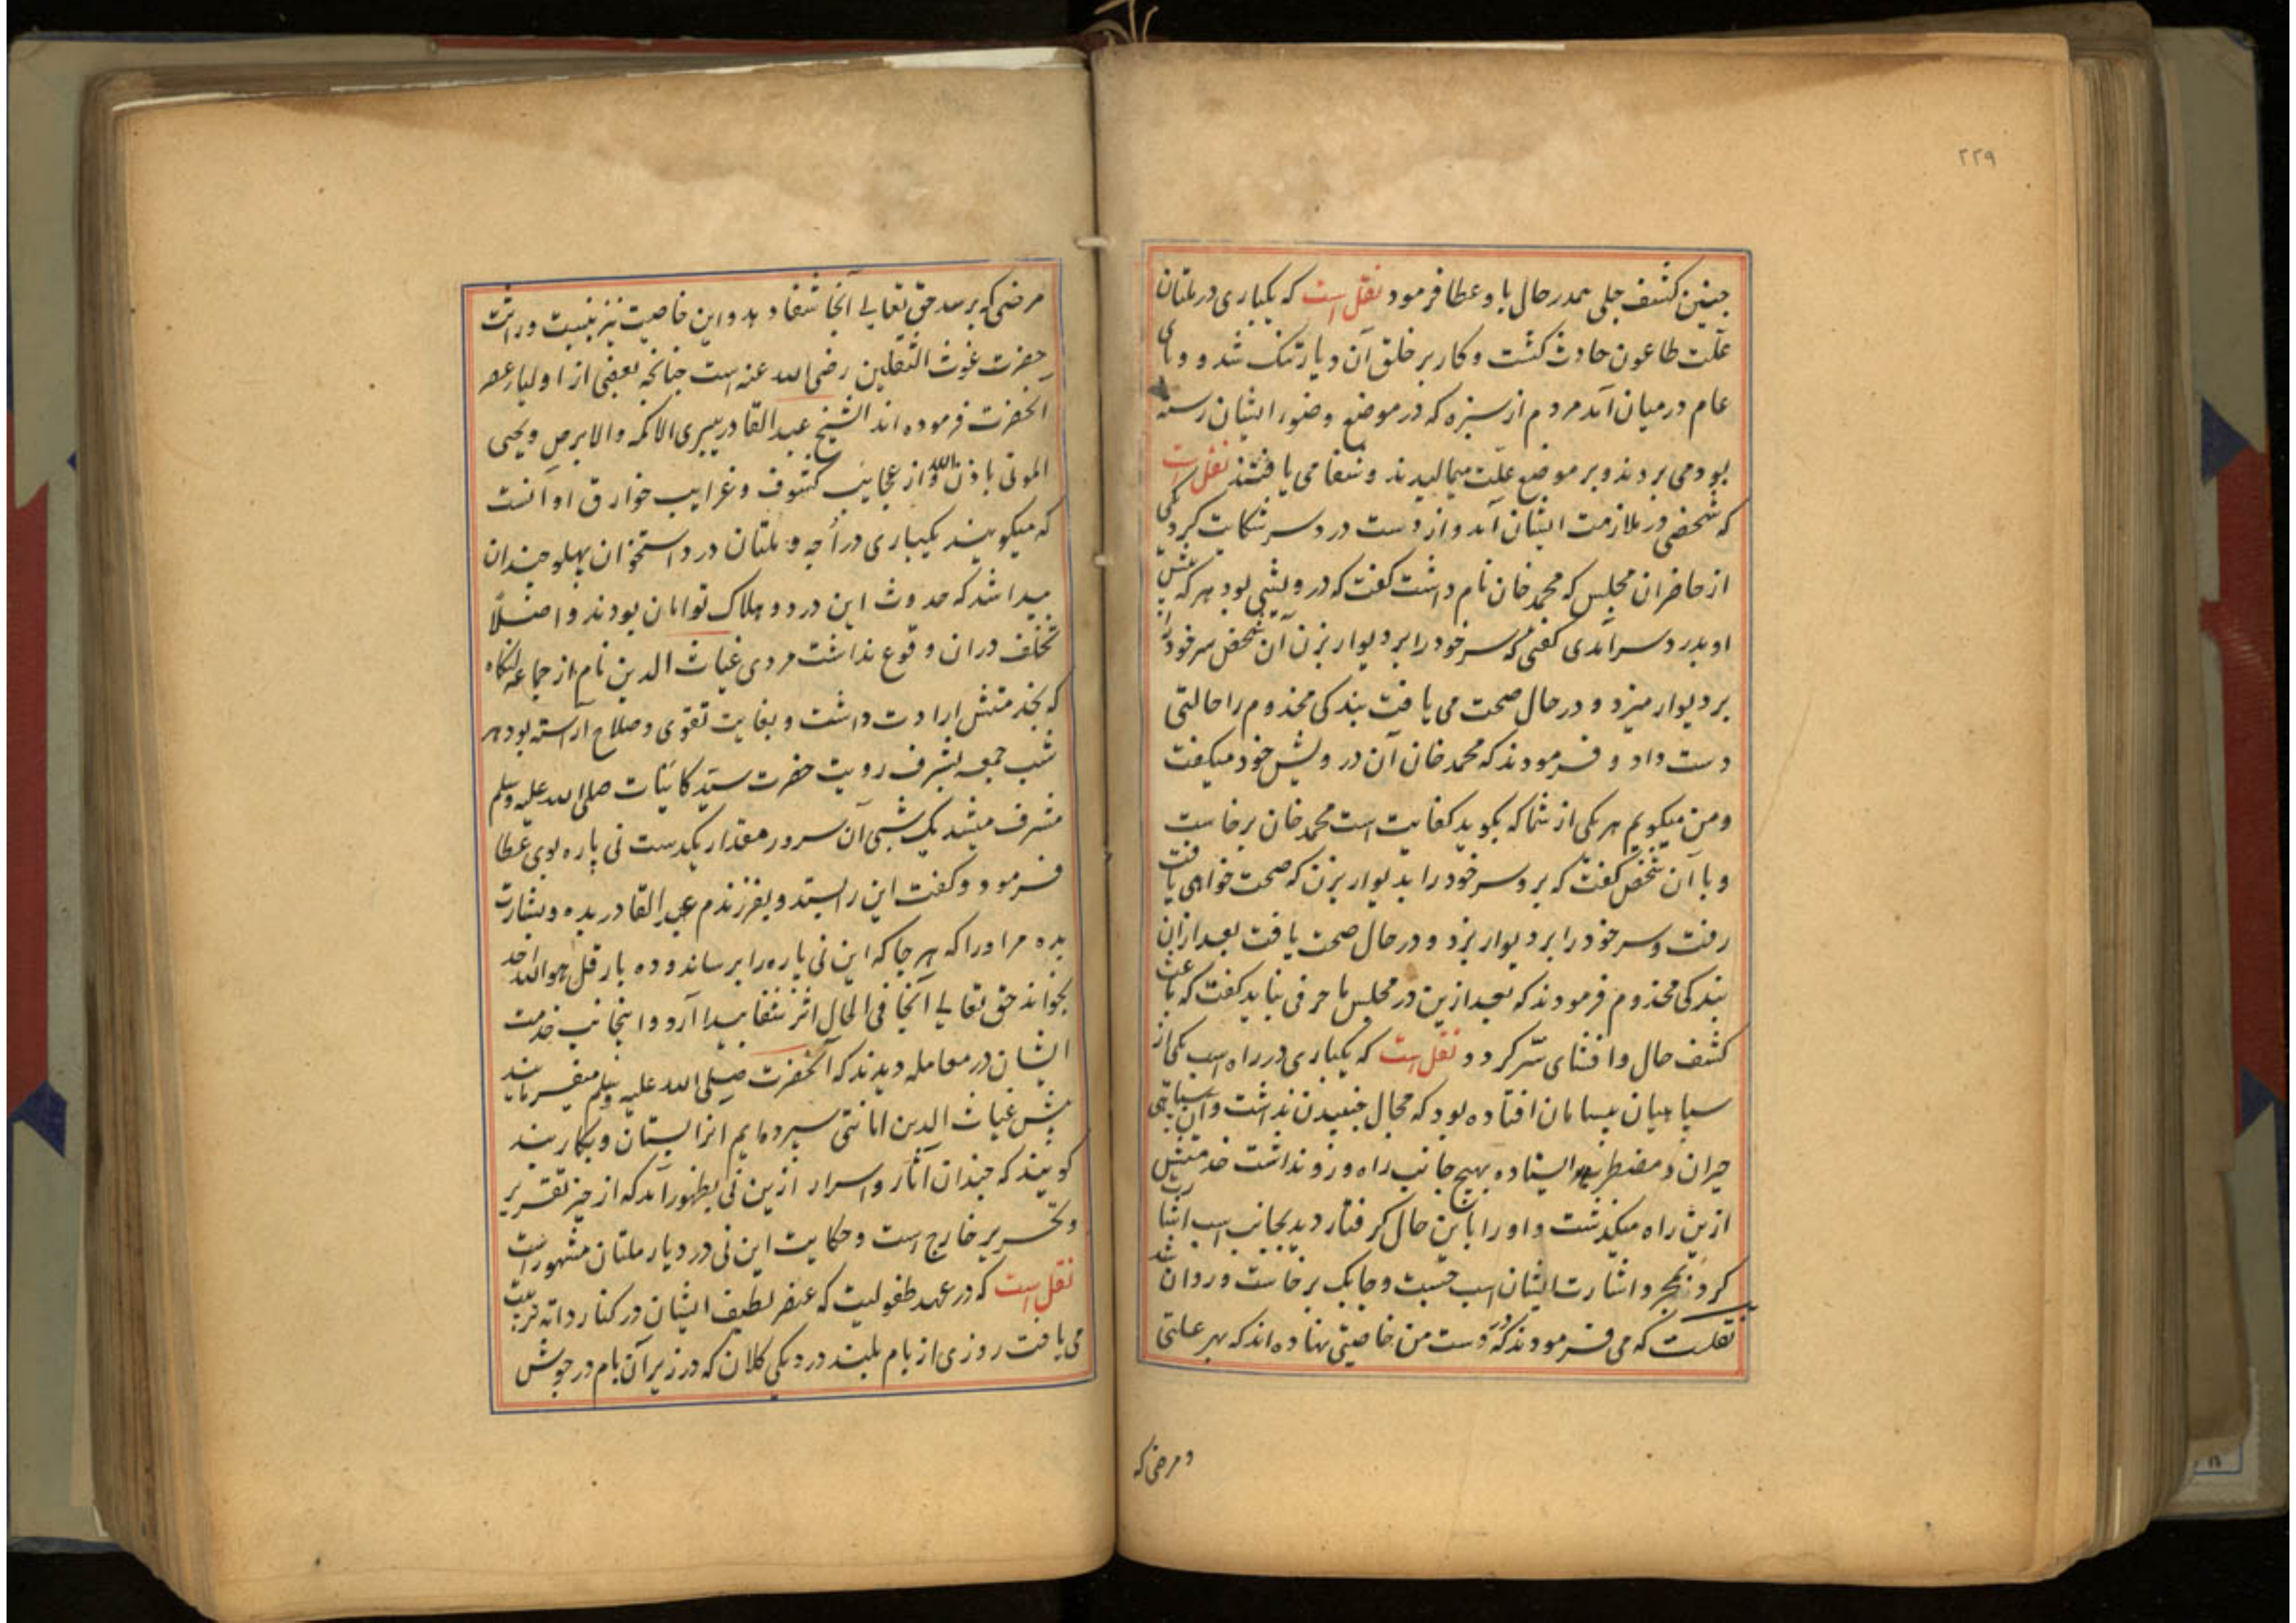 ۲۲۹
چنین کشف جلی همدر حال باو عطا فرمود نقل است که یکباری در ملتان
علّت طاعون حادث کشت و کار بر خلق آن دیار تنک شد و وبای
عام در میان آمد مردم از سبزه که در موضع وضوء ایشان رسته
بود می بردند و بر موضع علّت میمالیدند و شفا می یافتند نقل است
که شخصی در ملازمت ایشان آمد و از دست درد سر شکایت کرد یکی
از حاضران مجلس که محمد خان نام داشت کفت که درویشی بود هر که پیش
او بدرد سر آمدی کفتی که سر خود را بر دیوار بزن آن شخص سر خود را
بر دیوار میزد و در حال صحت می یافت بندکی مخدوم را حالتی
دست داد و فرمودند که محمد خان آن درویش خود میکفت
و من میکویم هر یکی از شما که بکوید کفایت است محمد خان برخاست
و با آن شخص کفت که برو سر خود را بدیوار بزن که صحت خواهی یافت
رفت و سر خود را بر دیوار بزد و در حال صحت یافت بعد ازان
بندکی مخدوم فرمودند که بعد ازین در مجلس ما حرفی نباید کفت که باعث
کشف حال و افشای سرّ کردد نقل است که یکباری در راه اسب یکی از
سپاهیان بیسامان افتاده بود که مجال جنبیدن نداشت و آن سپاهی
حیران و مضطرب ایستاده بهیچ جانب راه و رو نداشت خدمتش
ازین راه میکذشت و او را باین حال کرفتار دید بجانب اسب اشارت
کردند بمجرد اشارت ایشان اسب جست و چابک برخاست و روان شد
نقلست که می فرمودند که در دست من خاصیتی نهاده اند که بهر علتی
و مرضی که
مرضی که برسد حق تعالی آنجا شفا دهد و این خاصیت نیز بنسبت وراثت
حضرت غوث الثقلین رضی الله عنه است چنانچه بعضی از اولیاء عصر
آنحضرت فرموده اند الشیخ عبد القادر یبری الاکمه والابرص ویحیی
الموتی باذن الله و از عجایب کشوف و غرایب خوارق او آنست
که میکویند یکباری در اُچه و ملتان درد استخوان پهلو چندان
پیدا شد که حدوث این درد و هلاک توامان بودند و اصلًا
تخلف دران وقوع نداشت مردی غیاث الدین نام از جماعه لنکاه
که بخدمتش ارادت داشت و بغایت تقوی و صلاح آراسته بود هر
شب جمعه بشرف رویت حضرت سیّد کاینات صلی الله علیه وسلم
مشرف میشد یک شبی آن سرور مقدار یکدست نی پاره بوی عطا
فرمود و کفت این را بستد و بفرزندم عبد القادر بده و بشارت
بده مر او را که هر جا که این نی پاره را برساند و ده بار قل هو الله احد
بخواند حق تعالی آنجا فی الحال اثر شفا پیدا آرد و اینجانب خدمت
ایشان در معامله دیدند که آنحضرت صلی الله علیه وسلم میفرمایند
پیش غیاث الدین امانتی سپرده ایم آنرا بستان و بکار بند
کویند که چندان آثار و اسرار ازین نی بظهور آمد که از حیز تقریر
و تحریر خارج است و حکایت این نی در دیار ملتان مشهور است
نقل است که در عهد طفولیت که عنصر لطیف ایشان در کنار دایه تربیت
می یافت روزی از بام بلند در دیکی کلان که در زیر آن بام در جوش